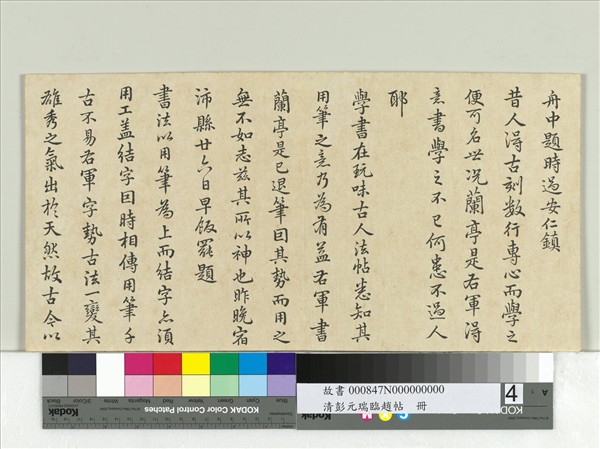 舟中題時過安仁鎮
昔人得古刻數行專心而學之
便可名世况蘭亭是右軍得
意書學之不已何患不過人
耶
學書在玩味古人法帖悉知其
用筆之意乃為有益右軍書
蘭亭是已退筆因其勢而用之
無不如志玆其所以神也昨晚宿
沛縣廿六日早飯罷題
書法以用筆為上而結字亦須
用工盖結字因時相傳用筆千
古不易右軍字勢古法一變其
雄秀之氣出於天然故古今以
Blue
Cyan
Green
Yellow
Red
Magenta
White
3/Color
Black
KODAK Color Control Patches
Kodak
故書 000847N000000000
清彭元瑞臨趙帖 冊
4
A
1
KOD
Kodak